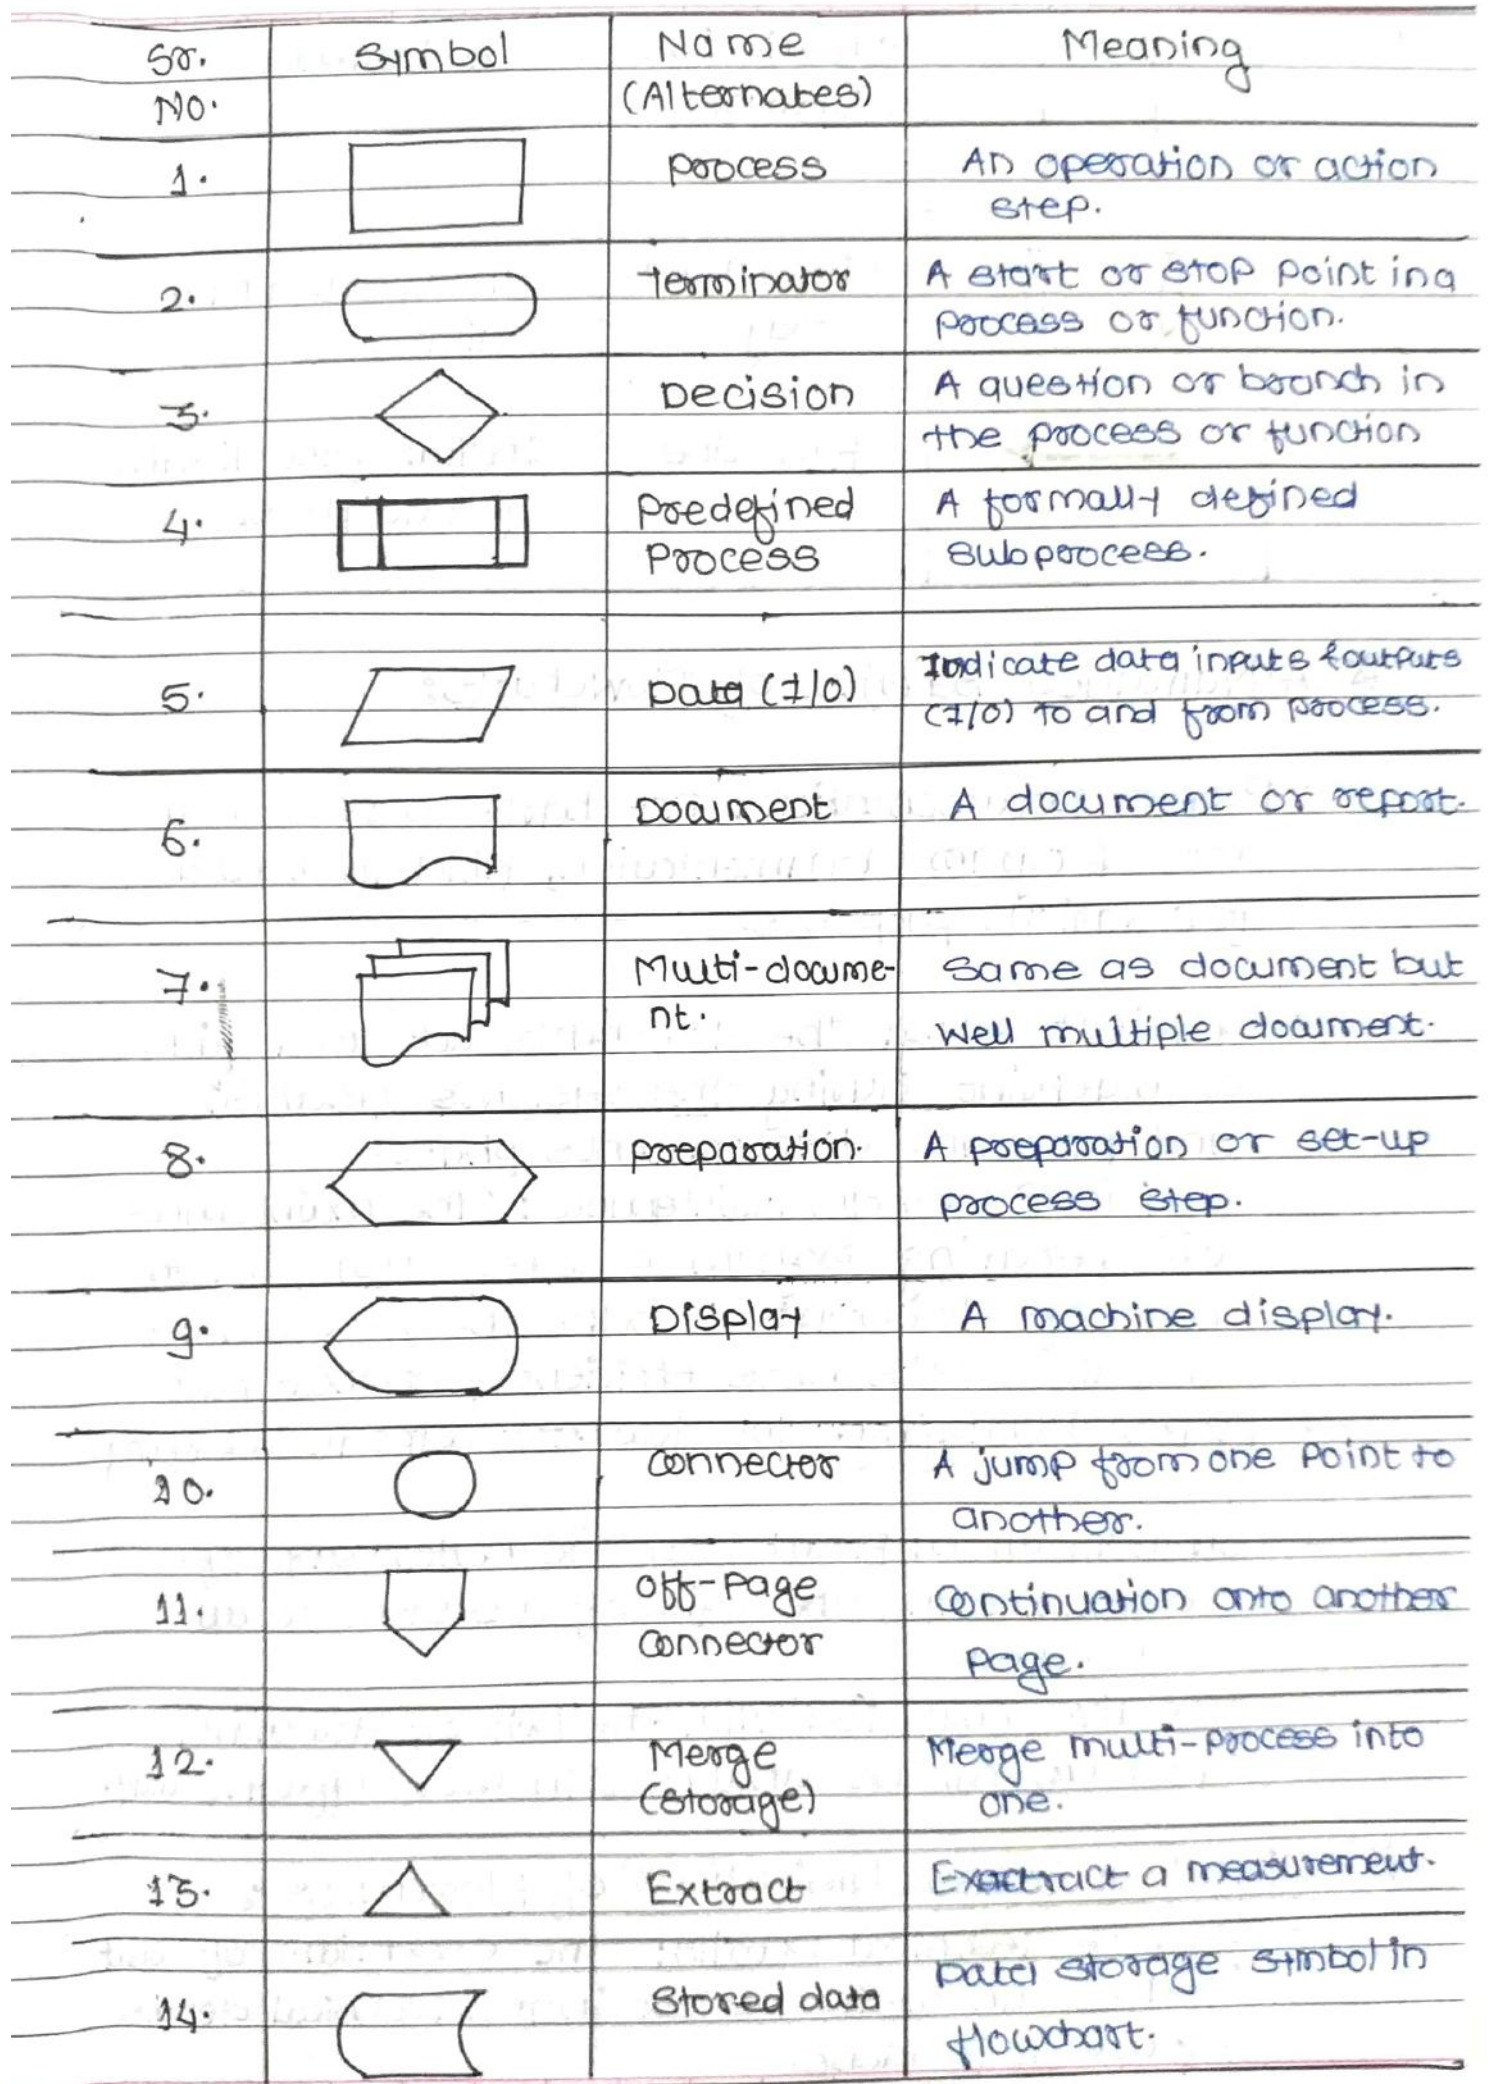 Sr. Symbol Name Meaning
No. (Alternates)
1. Process An operation or action
step.
2. Terminator A start or stop point in a
process or function.
3. Decision A question or branch in
the process or function
4. Predefined A formally defined
Process subprocess.
5. Data (I/O) Indicate data inputs & outputs
(I/O) to and from process.
6. Document A document or report.
7. Multi-docume- Same as document but
nt. well multiple document.
8. Preparation. A preparation or set-up
process step.
9. Display A machine display.
10. Connector A jump from one point to
another.
11. Off-page Continuation onto another
Connector page.
12. Merge Merge multi-process into
(Storage) one.
13. Extract a measurement.
14. Stored data Data storage symbol in
flowchart.